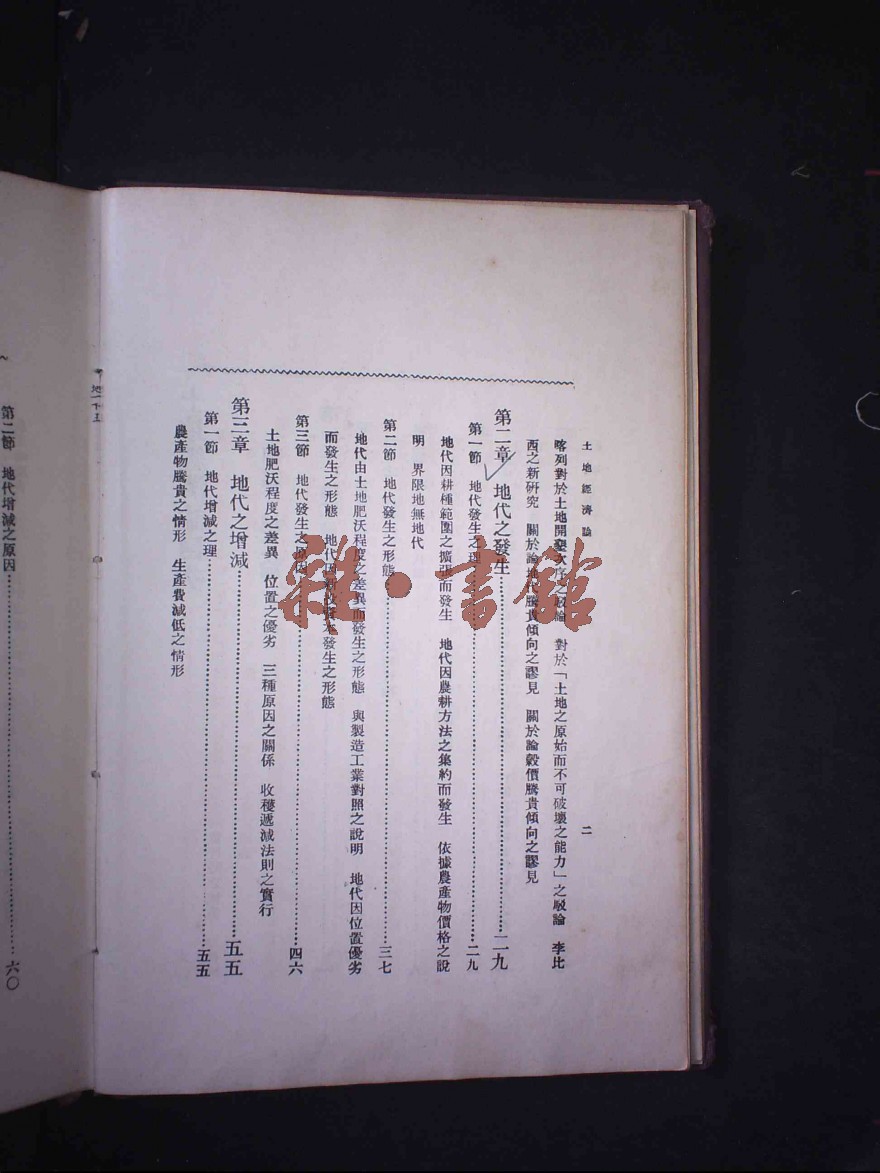 土地經濟論　二
喀列對於土地開墾次序之駁論　對於「土地之原始而不可破壞之能力」之駁論　李比
西之新研究　關於論地代騰貴傾向之謬見　關於論穀價騰貴傾向之謬見
第二章　地代之發生……二九
第一節　地代發生之理……二九
地代因耕種範圍之擴張而發生　地代因農耕方法之集約而發生　依據農產物價格之說
明　界限地無地代
第二節　地代發生之形態……三七
地代由土地肥沃程度之差異而發生之形態　與製造工業對照之說明　地代因位置優劣
而發生之形態　地代因新投資本發生之形態
第三節　地代發生之原因……四六
土地肥沃程度之差異　位置之優劣　三種原因之關係　收穫遞減法則之實行
第三章　地代之增減……五五
第一節　地代增減之理……五五
農產物騰貴之情形　生產費減低之情形
第二節　地代增減之原因……六〇
雜·書館